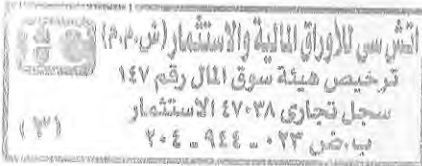 اتش سي للأوراق المالية والاستثمار (ش.م.م)
ترخيص هيئة سوق المال رقم ١٤٧
سجل تجارى ٤٧٠٣٨ الاستثمار
ب.ض ٠٢٣ - ٩٤٤ - ٢٠٤
(٣١)